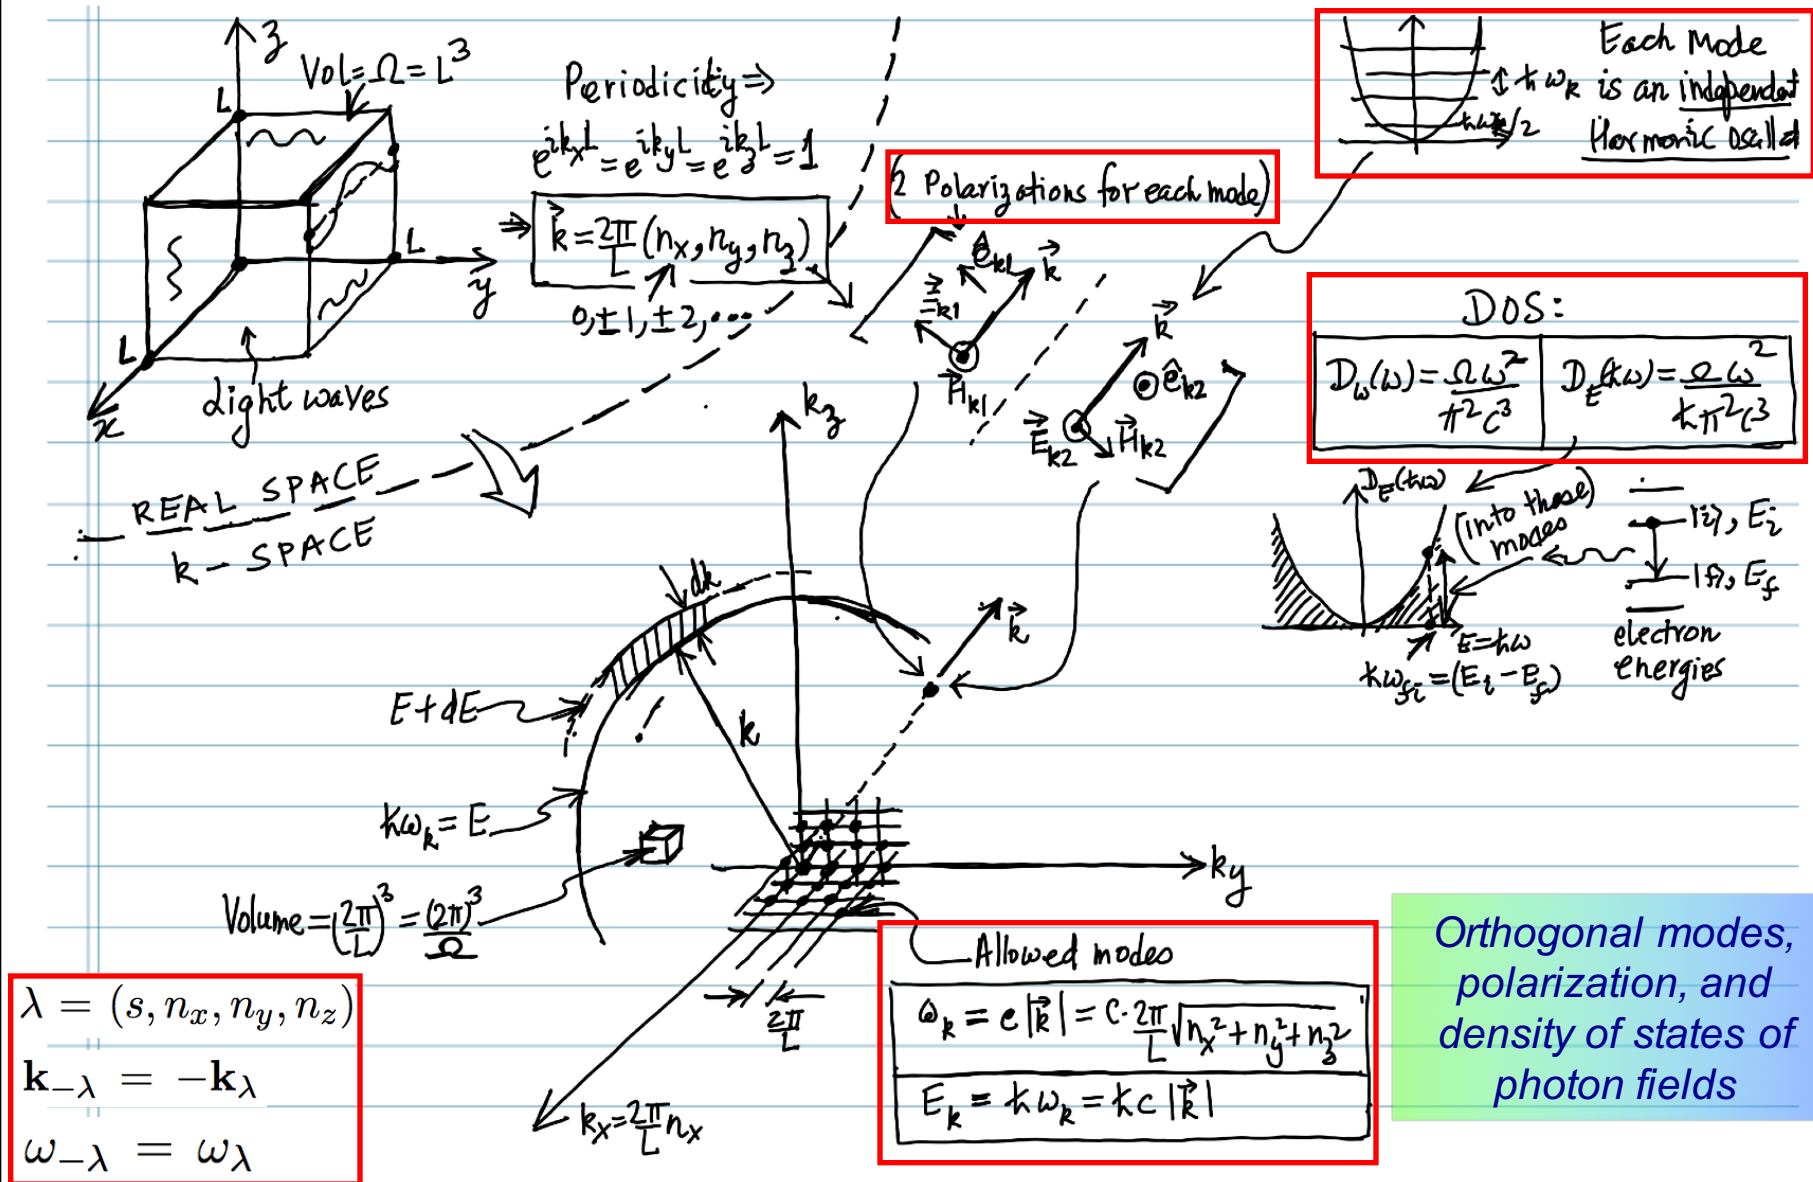 z
Vol=Ω=L³
L
L
y
L
x
Light waves
Periodicity ⇒
e^{ik_xL} = e^{ik_yL} = e^{ik_zL} = 1
⇒ k⃗ = 2π/L (n_x, n_y, n_z)
0, ±1, ±2, ...
(2 Polarizations for each mode)
ê_{k1}
k⃗
E⃗_{k1}
H⃗_{k1}
k⃗
ê_{k2}
E⃗_{k2}
H⃗_{k2}
Each Mode
↕ ħω_k is an independent
ħω_k/2
Harmonic Oscillat
DOS:
D_ω(ω) = Ωω²/π²c³
D_E(ħω) = Ωω²/ħπ²c³
REAL SPACE
k - SPACE
D_E(ħω)
(into these)
modes
|i⟩, E_i
|f⟩, E_f
E=ħω
ħω_{fi} = (E_i - E_f)
electron
energies
k_z
dk
k⃗
E+dE
k
ħω_k = E
k_y
Volume = (2π/L)³ = (2π)³/Ω
2π/L
k_x = 2π/L n_x
Allowed modes
ω_k = c|k⃗| = c·2π/L √(n_x² + n_y² + n_z²)
E_k = ħω_k = ħc|k⃗|
λ = (s, n_x, n_y, n_z)
k_{−λ} = −k_λ
ω_{−λ} = ω_λ
Orthogonal modes,
polarization, and
density of states of
photon fields